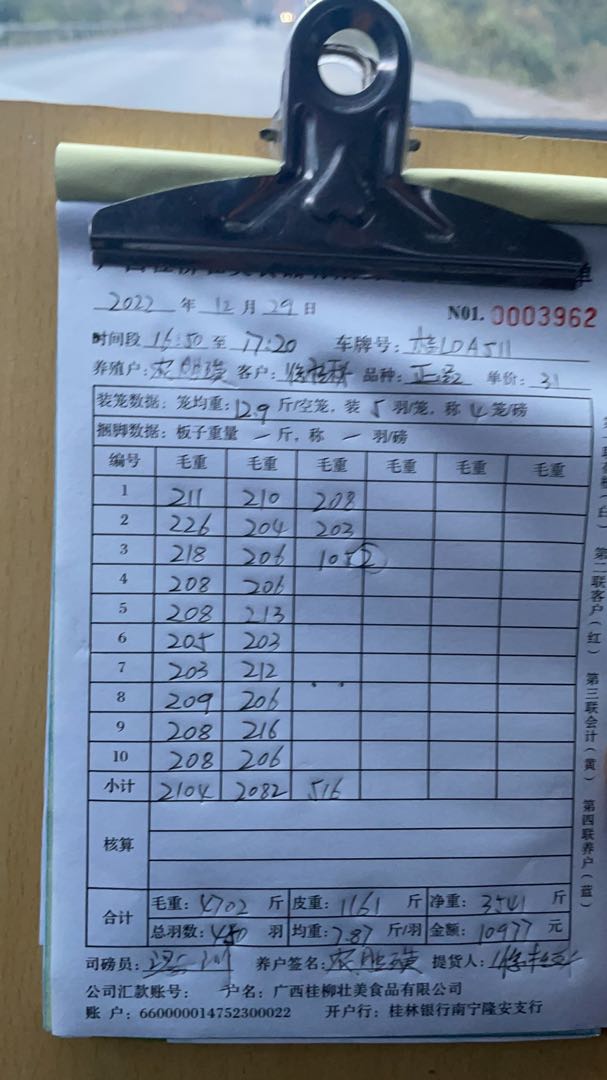 2022 年 12 月 29 日 N01. 0003962
时间段 16:50 至 17:20 车牌号: 桂LDA511
养殖户: 客户: 品种: 单价: 3.1
装笼数据: 笼均重: 12.9 斤/空笼, 装 5 羽/笼, 称 4 笼/磅
捆脚数据: 板子重量 一 斤, 称 一 羽/磅
编号 毛重 毛重 毛重 毛重 毛重 毛重
1 211 210 208
2 226 204 203
3 218 206 105 2
4 208 206
5 208 213
6 205 203
7 203 212
8 209 206
9 208 216
10 208 206
小计 2104 2082 516
核算
合计
毛重: 4702 斤 皮重: 1161 斤 净重: 3541 斤
总羽数: 450 羽 均重: 7.87 斤/羽 金额: 10977 元
司磅员: 养户签名: 提货人:
公司汇款账号: 户名: 广西桂柳壮美食品有限公司
账 户: 660000014752300022 开户行: 桂林银行南宁隆安支行
(白)
第二联客户(红)
第三联会计(黄)
第四联养户(蓝)